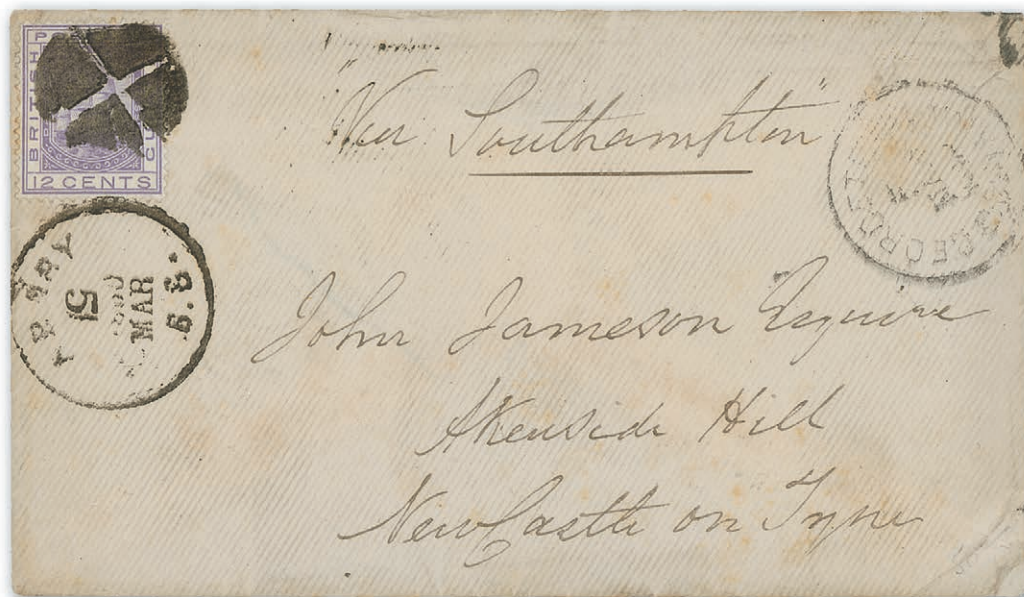 BRITISH
12 CENTS
"Via Southampton"
MAR
5
John Jameson Esquire
Akenside Hill
NewCastle on Tyne